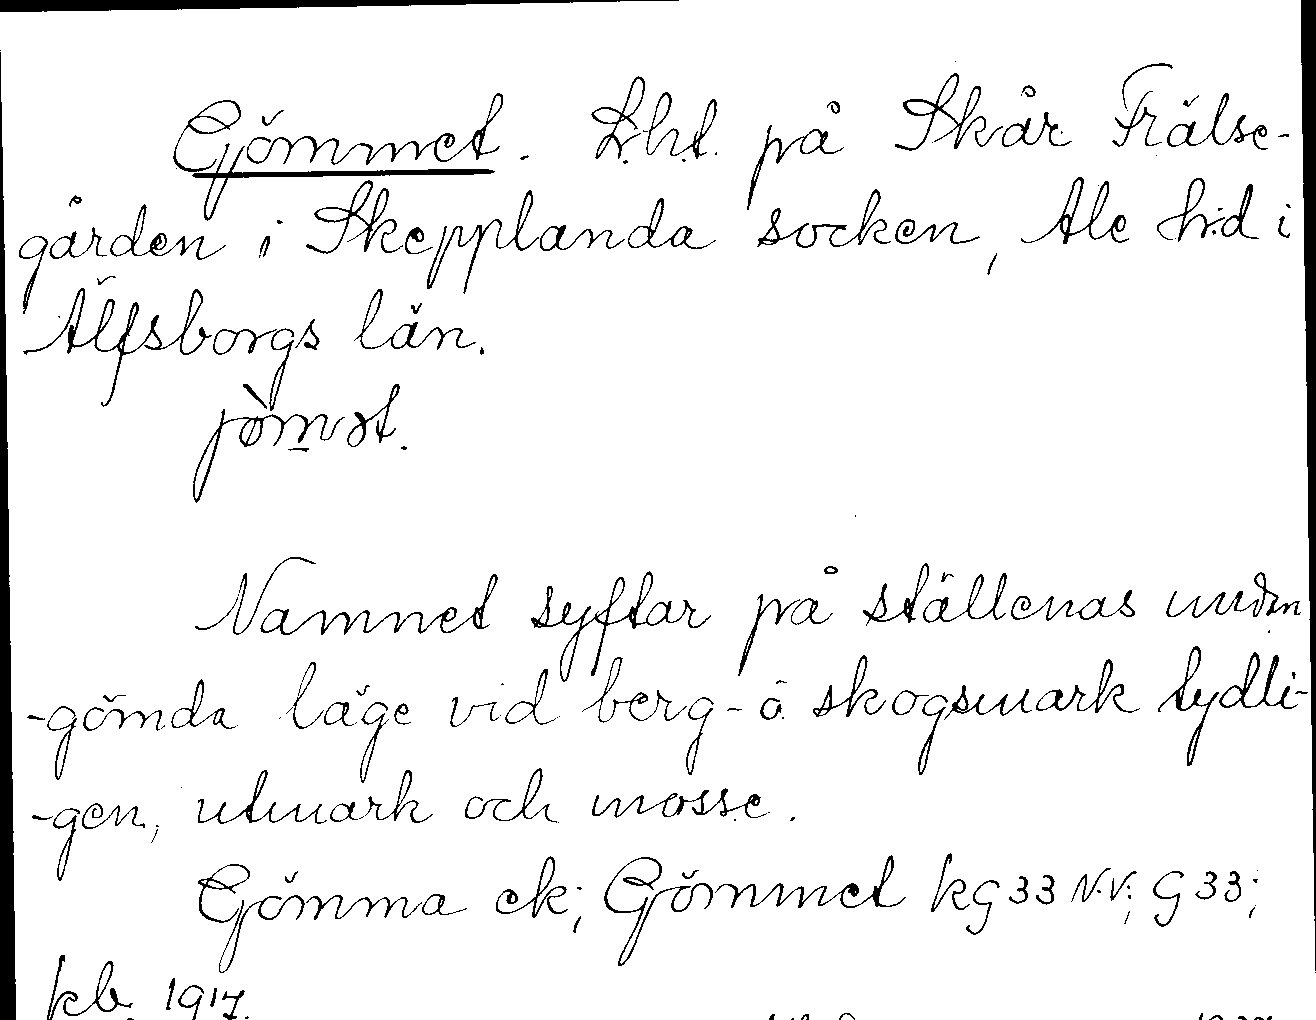 Gömmet. L.h.t. på Skår Frälse-
gården i Skepplanda socken, Ale h:d i
Älfsborgs län.
jòmət.
Namnet syftar på ställenas undan
-gömda läge vid berg- o. skogsmark tydli-
-gen, utmark och mosse.
Gömma ek; Gömmet kg 33 N.V; G 33;
kb. 1917.